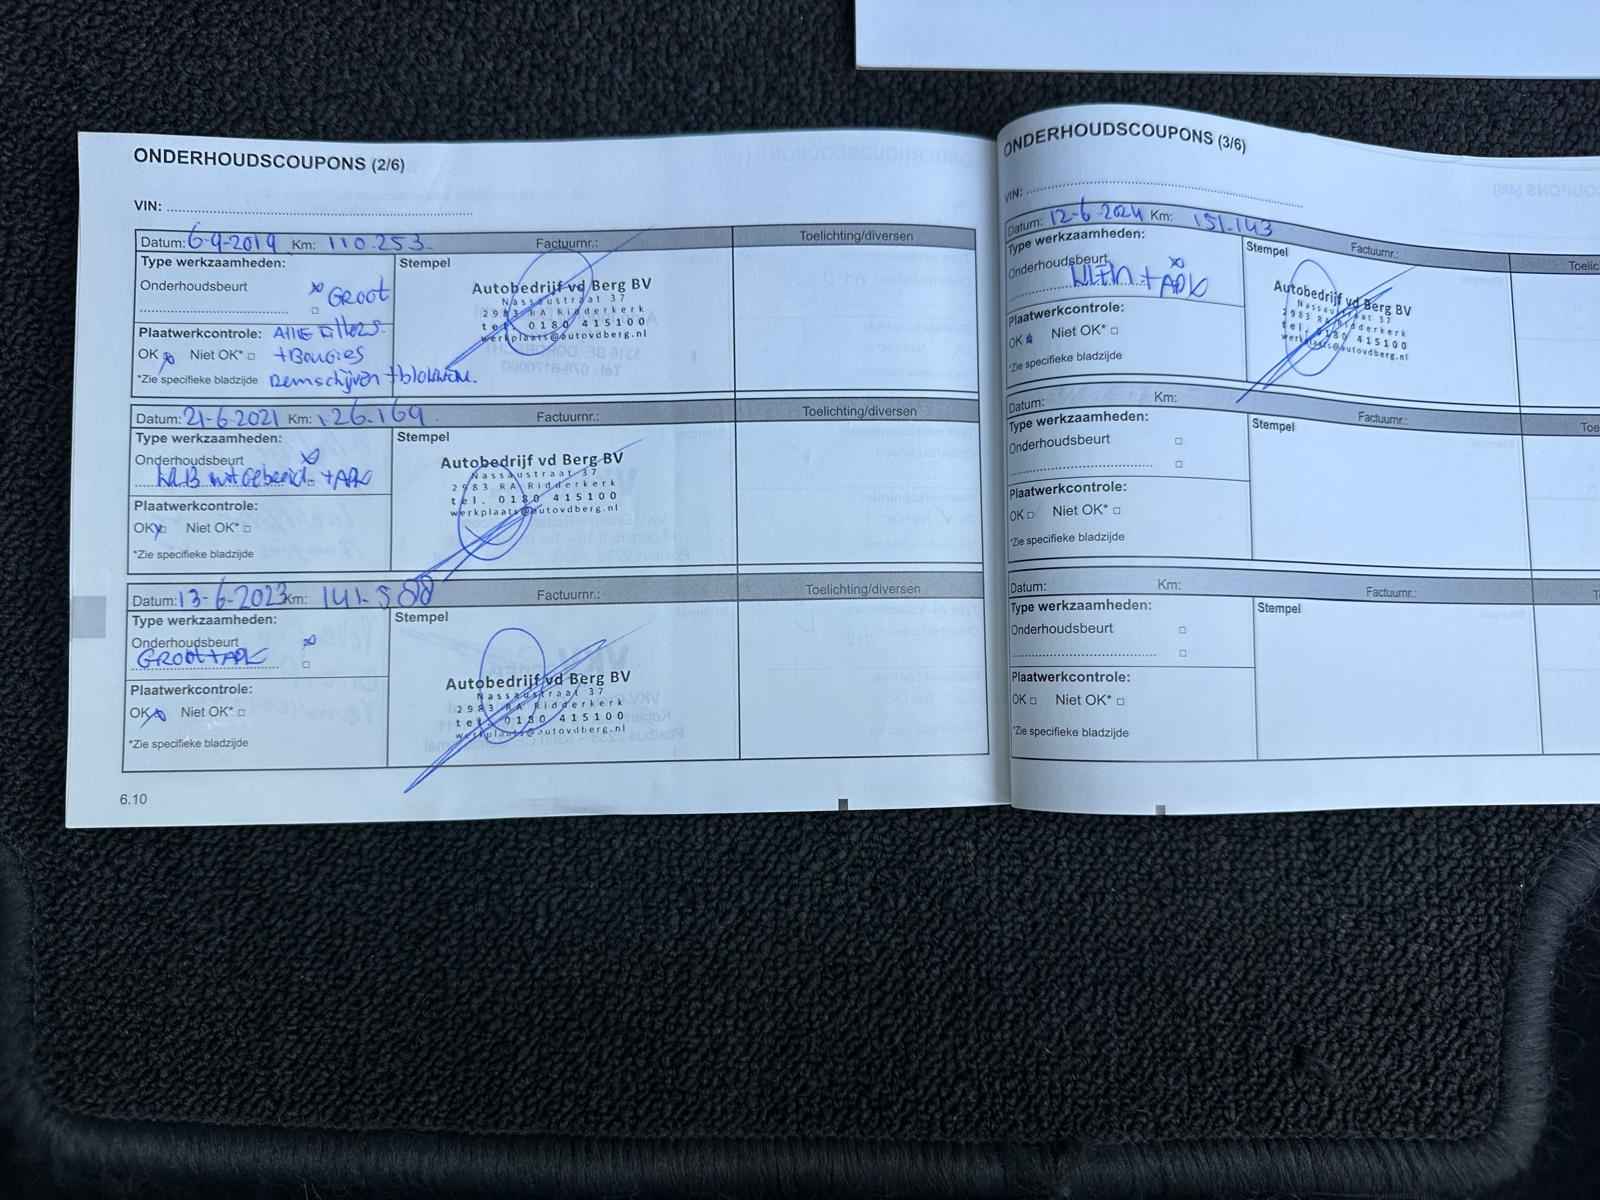 ONDERHOUDSCOUPONS (2/6)
VIN:
Datum: 6-9-2019 Km: 110.253. Factuurnr.: Toelichting/diversen
Type werkzaamheden: Stempel
Onderhoudsbeurt GROOT
Plaatwerkcontrole: Alle filters
OK Niet OK* + Bougies
*Zie specifieke bladzijde Remschijven + blokken.
Autobedrijf vd Berg BV
Nassaustraat 37
2983 RA Ridderkerk
tel. 0180 415100
werkplaats@autovdberg.nl
Datum: 21-6-2021 Km: 126.169. Factuurnr.: Toelichting/diversen
Type werkzaamheden: Stempel
Onderhoudsbeurt
+ APK
Plaatwerkcontrole:
OK Niet OK*
*Zie specifieke bladzijde
Autobedrijf vd Berg BV
Nassaustraat 37
2983 RA Ridderkerk
tel. 0180 415100
werkplaats@autovdberg.nl
Datum: 13-6-2023 Km: 141.588 Factuurnr.: Toelichting/diversen
Type werkzaamheden: Stempel
Onderhoudsbeurt
GROOT + APK
Plaatwerkcontrole:
OK Niet OK*
*Zie specifieke bladzijde
Autobedrijf vd Berg BV
Nassaustraat 37
2983 RA Ridderkerk
tel. 0180 415100
werkplaats@autovdberg.nl
6.10
ONDERHOUDSCOUPONS (3/6)
VIN:
Datum: 12-6-2024 Km: 151.143 Factuurnr.:
Type werkzaamheden: Stempel
Onderhoudsbeurt
Klein + APK
Plaatwerkcontrole:
OK Niet OK*
*Zie specifieke bladzijde
Autobedrijf vd Berg BV
Nassaustraat 37
2983 RA Ridderkerk
tel. 0180 415100
werkplaats@autovdberg.nl
Datum: Km: Factuurnr.:
Type werkzaamheden: Stempel
Onderhoudsbeurt
Plaatwerkcontrole:
OK Niet OK*
*Zie specifieke bladzijde
Datum: Km: Factuurnr.:
Type werkzaamheden: Stempel
Onderhoudsbeurt
Plaatwerkcontrole:
OK Niet OK*
*Zie specifieke bladzijde